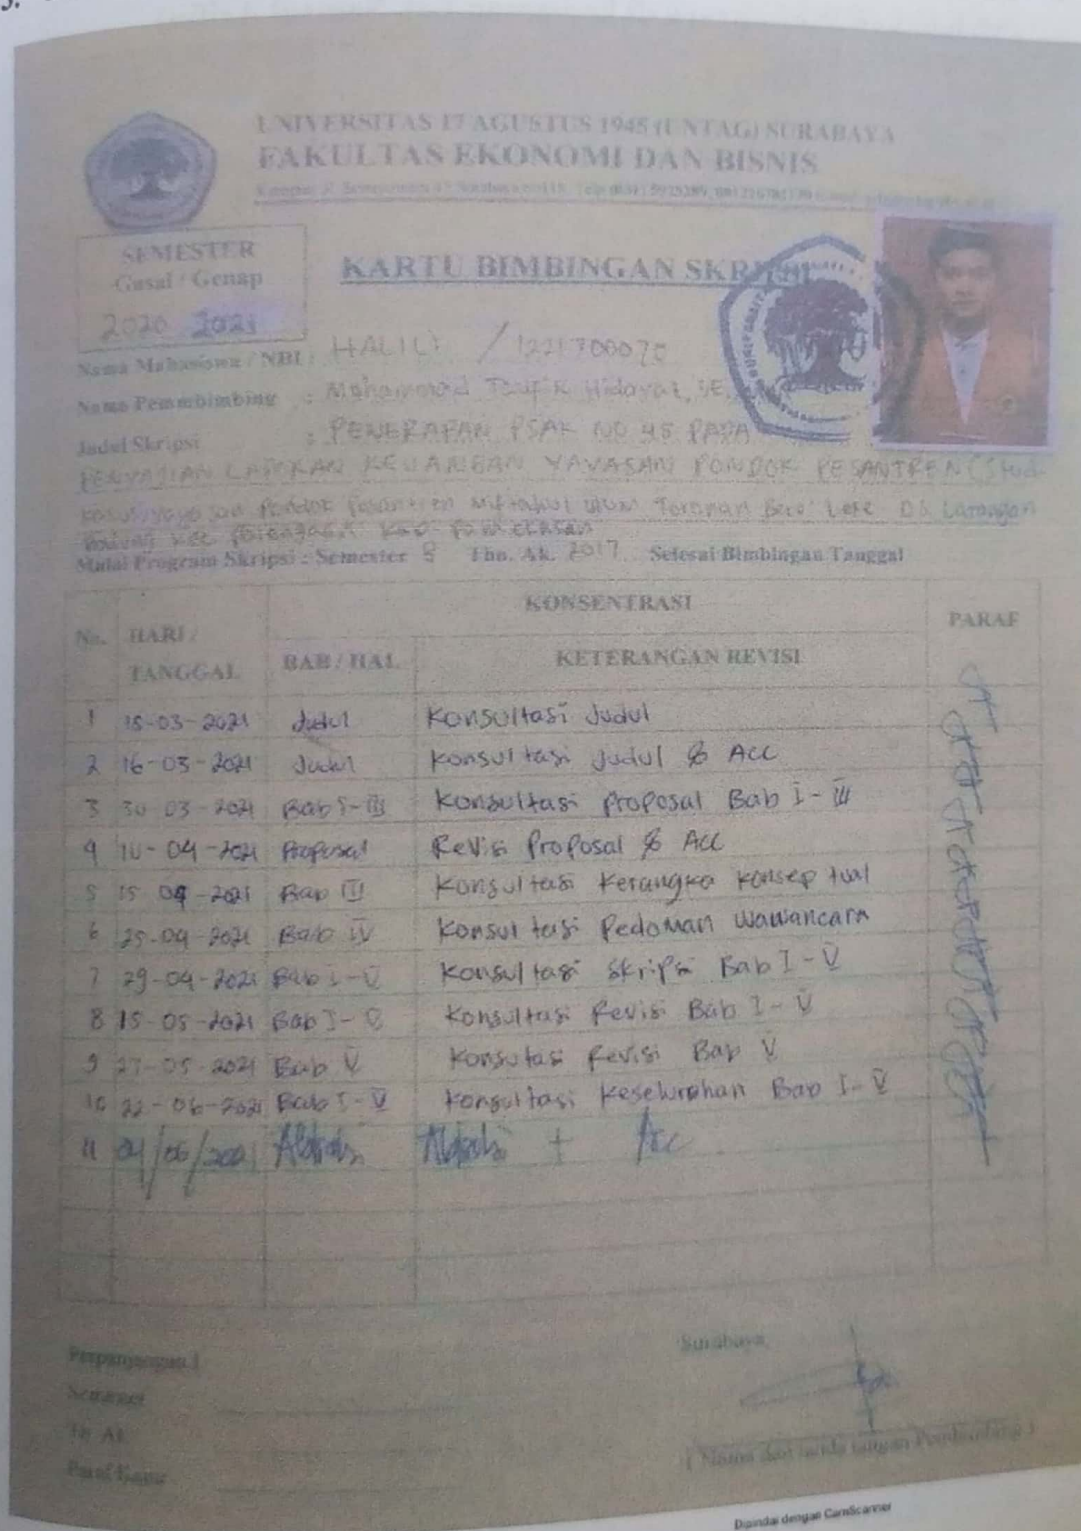 UNIVERSITAS 17 AGUSTUS 1945 (UNTAG) SURABAYA
FAKULTAS EKONOMI DAN BISNIS
SEMESTER
Gasal / Genap
2020 2021
KARTU BIMBINGAN SKRIPSI
Nama Mahasiswa / NBI : HALILI / 1221700070
Nama Pembimbing : Mohammad Taufik Hidayat, SE,
Judul Skripsi : PENERAPAN PSAK NO 45 PADA
PENYAJIAN LAPORAN KEUANGAN YAYASAN PONDOK PESANTREN (Studi
kasus Yayasan Pondok Pesantren Miftahul Ulum Leke Ds Larangan
Kec Kab Pamekasan
Mulai Program Skripsi : Semester 8 Thn. Ak. 2017 Selesai Bimbingan Tanggal
No. HARI / TANGGAL KONSENTRASI PARAF
BAB / HAL KETERANGAN REVISI
1 15-03-2021 Judul Konsultasi Judul
2 16-03-2021 Judul Konsultasi Judul & ACC
3 30 03-2021 Bab I-III Konsultasi Proposal Bab I-III
4 10-04-2021 Proposal Revisi Proposal & ACC
5 15 04-2021 Bab III Konsultasi Kerangka Konseptual
6 25-04-2021 Bab IV Konsultasi Pedoman Wawancara
7 29-04-2021 Bab I-V Konsultasi Skripsi Bab I-V
8 15-05-2021 Bab I-V Konsultasi Revisi Bab I-V
9 27-05-2021 Bab V Konsutasi Revisi Bab V
10 22-06-2021 Bab I-V Konsultasi Keselurohan Bab I-V
11 04/06/2021 + Acc
Perpanjangan I
Surabaya,
Semester
Th Ak
(Nama dan tanda tangan Pembimbing)
Dipindai dengan CamScanner